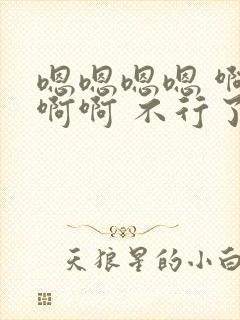 嗯嗯嗯嗯 啊
啊啊 不行了
天狼星的小白